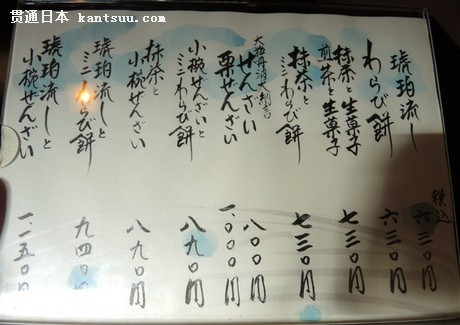 贯通日本 kantsuu.com
琥珀流し 税込 六三〇円
わらび餅 六三〇円
抹茶と生菓子
煎茶と生菓子 七三〇円
抹茶と
ミニわらび餅 七三〇円
大極丹波大納言
ぜんざい 八〇〇円
栗ぜんざい 一、〇〇〇円
小椀ぜんざいと
ミニわらび餅 八九〇円
抹茶と
小椀ぜんざい 八九〇円
琥珀流しと
ミニわらび餅 九四〇
琥珀流しと
小椀ぜんざい 一一五〇